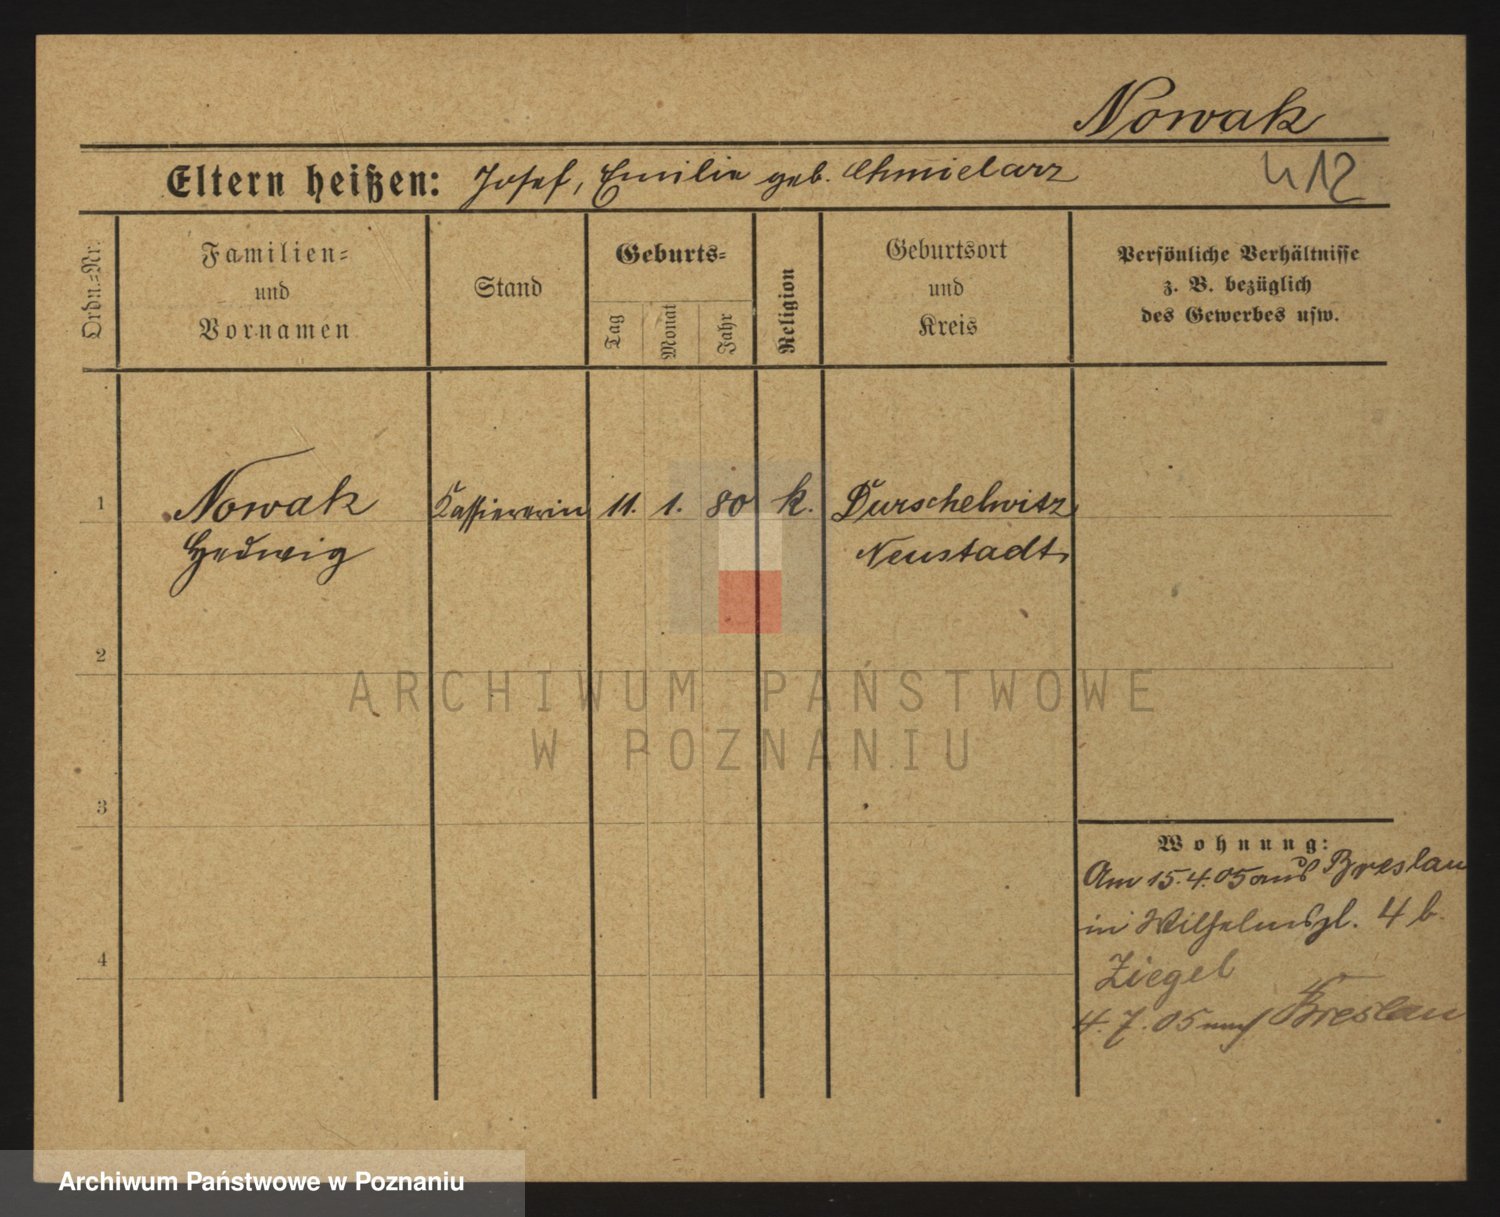 Nowak
Eltern heißen: Josef, Emilie geb. Chmielarz
412
Ordn.=Nr.
Familien=
und
Vornamen
Stand
Geburts=
Tag
Monat
Jahr
Religion
Geburtsort
und
Kreis
Persönliche Verhältnisse
z. B. bezüglich
des Gewerbes usw.
1
Nowak
Hedwig
Kassiererin
11. 1. 80
k.
Durschelwitz
Neustadt
2
ARCHIWUM PAŃSTWOWE
W POZNANIU
3
Wohnung:
Am 15.4.05 aus Breslau
in Wilhelmspl. 4 b.
Ziegel
4
4.7.05 nach Breslau
Archiwum Państwowe w Poznaniu